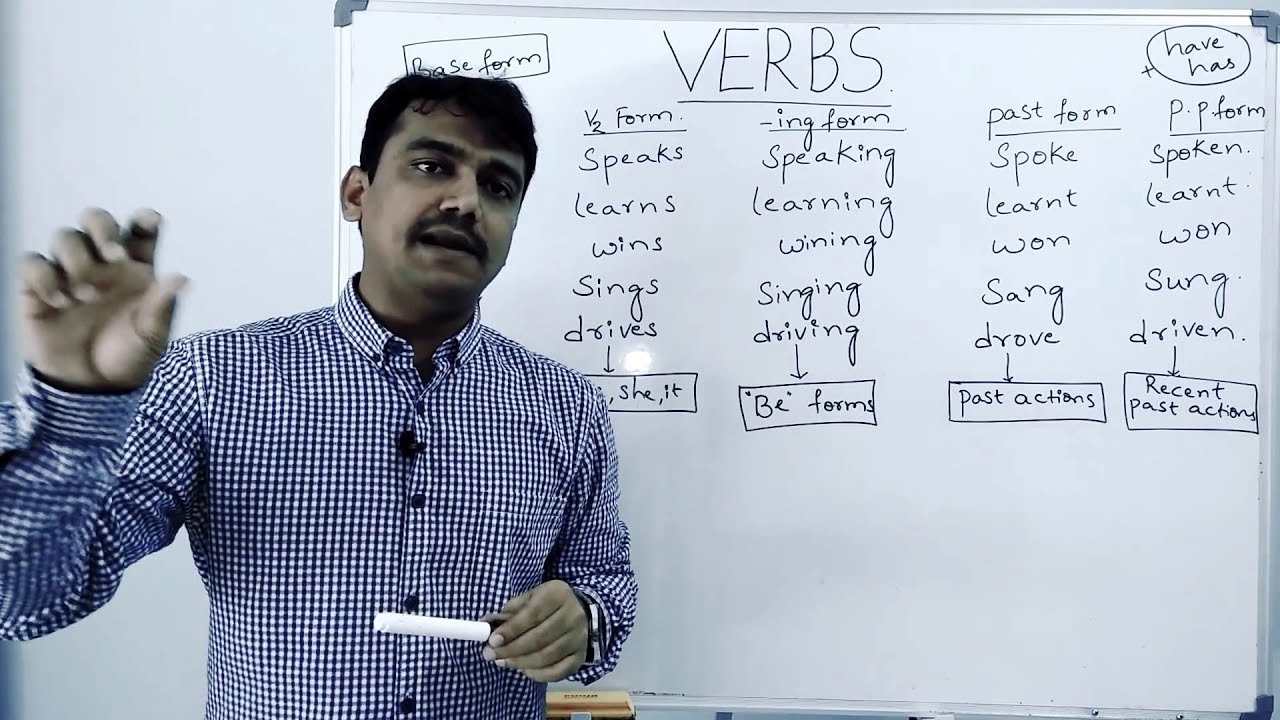 VERBS.
Base form
+ have
has
V2 Form. -ing form past form p.p form
Speaks Speaking Spoke Spoken.
learns learning learnt learnt.
wins wining won won
Sings Singing Sang Sung.
drives driving drove driven.
, she, it "Be" forms past actions Recent
past actions